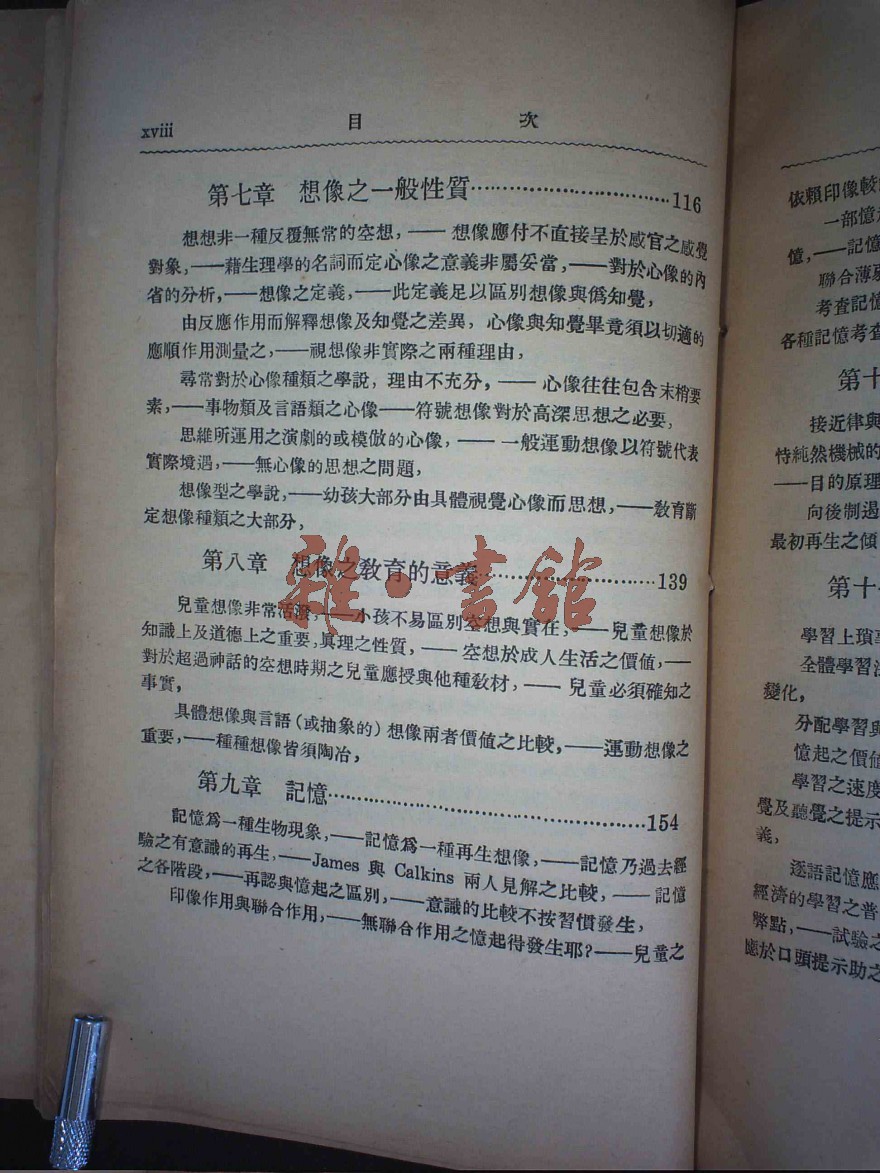 xviii 目次
第七章 想像之一般性質……………………116
想想非一種反覆無常的空想，—— 想像應付不直接呈於感官之感覺
對象，——藉生理學的名詞而定心像之意義非屬妥當，——對於心像的內
省的分析，——想像之定義，——此定義足以區別想像與僞知覺，
由反應作用而解釋想像及知覺之差異，心像與知覺畢竟須以切適的
應順作用測量之，——視想像非實際之兩種理由，
尋常對於心像種類之學說，理由不充分，—— 心像往往包含末梢要
素，——事物類及言語類之心像——符號想像對於高深思想之必要，
思維所運用之演劇的或模倣的心像，—— 一般運動想像以符號代表
實際境遇，——無心像的思想之問題，
想像型之學說，——幼孩大部分由具體視覺心像而思想，——敎育斷
定想像種類之大部分，
第八章 想像之敎育的意義……………………139
兒童想像非常活潑，——小孩不易區別空想與實在，—— 兒童想像於
知識上及道德上之重要，眞理之性質，—— 空想於成人生活之價值，——
對於超過神話的空想時期之兒童應授與他種敎材，—— 兒童必須確知之
事實，
具體想像與言語（或抽象的）想像兩者價値之比較，——運動想像之
重要，——種種想像皆須陶冶，
第九章 記憶……………………………………154
記憶爲一種生物現象，——記憶爲一種再生想像，——記憶乃過去經
驗之有意識的再生，——James 與 Calkins 兩人見解之比較，—— 記憶
之各階段，——再認與憶起之區別，——意識的比較不按習慣發生，
印像作用與聯合作用，——無聯合作用之憶起得發生耶？——兒童之
依賴印像較
一部憶
憶，——記憶
聯合薄
考查記憶
各種記憶考查
第十
接近律與
恃純然機械的
——目的原理
向後制過
最初再生之傾
第十
學習上瑣
全體學習
變化，
分配學習與
憶起之價值
學習之速度
覺及聽覺之提示
義，
逐語記憶應
經濟的學習之普
弊點，——試驗之
應於口頭提示助之
雜·書館